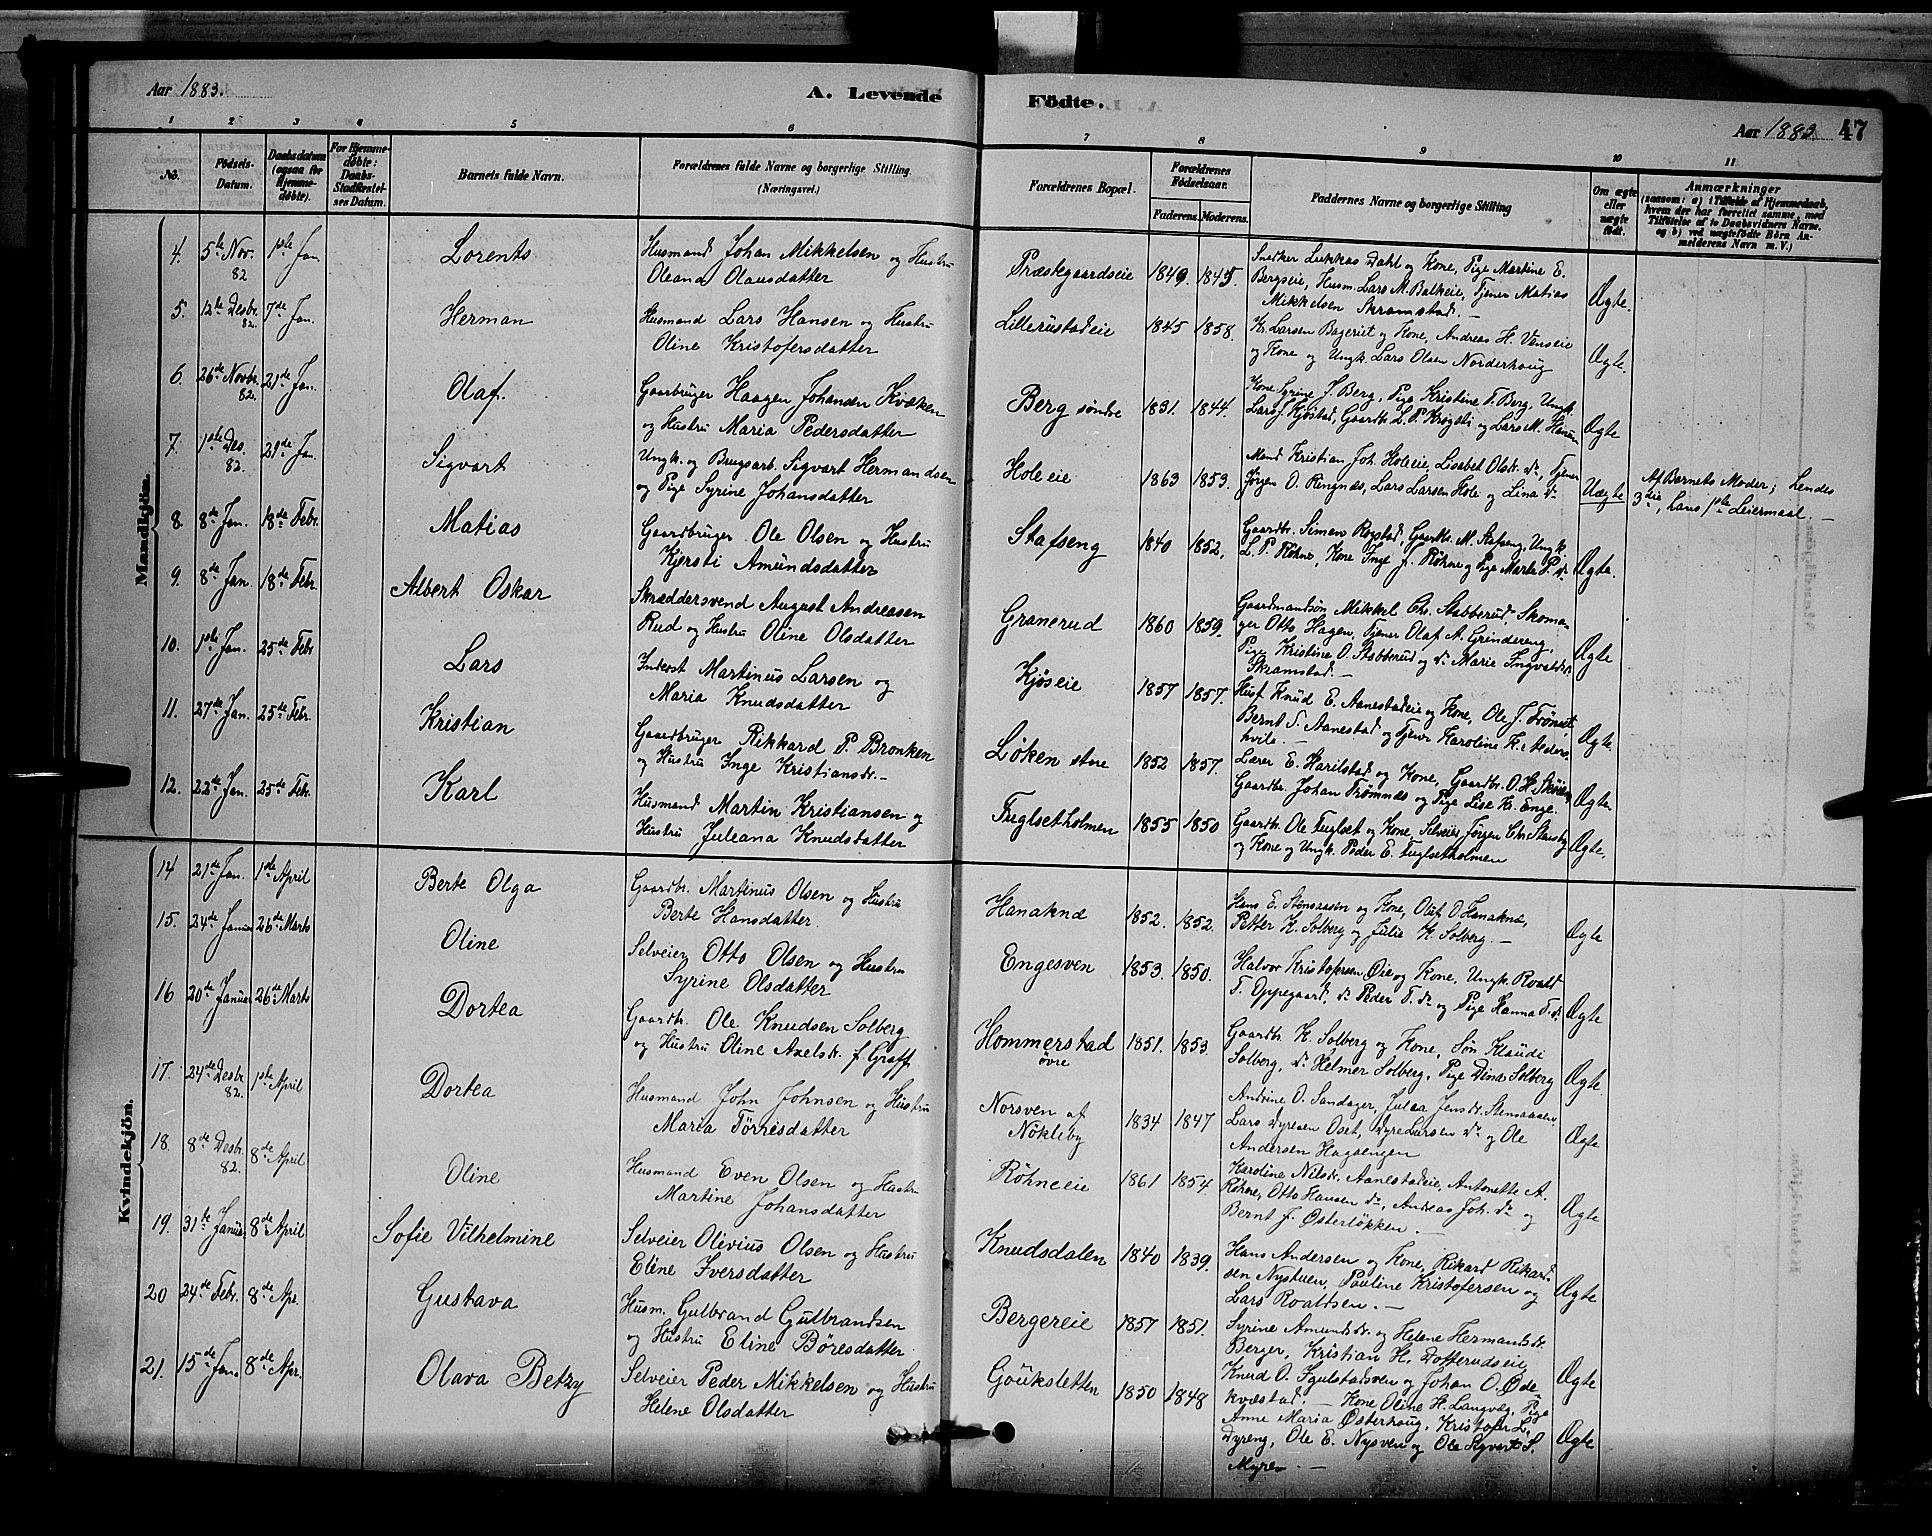 Aar 1883.
A. Levende
Födte.
Aar 1883
47
1 2 3 4 5 6 7 8 9 10 11
No.
Födsels-Datum.
Daabsdatum (ogsaa for Hjemmedöbte).
For Hjemmedöbte: Daabs-Stadfæstelses Datum.
Barnets fulde Navn.
Forældrenes fulde Navne og borgerlige Stilling.
(Næringsvei.)
Forældrenes Bopæl.
Forældrenes Födselsaar.
Faderens. Moderens.
Faddernes Navne og borgerlige Stilling
Om ægte eller uægte födt.
Anmærkninger
(saasom: a) i Tilfælde af Hjemmedaab, hvem der har forrettet samme, med Tilföielse af to Daabsvidners Navne, og b) ved uægtefödte Börn Anmelderens Navn m. V.)
Mandkjön.
4. 5te Nov. 82 1ste Jan. Lorents
Husmand Johan Mikkelsen og Hustru
Oleana Olausdatter
Præstegaardseie 1849. 1845.
Snedker Lukkas Dahl og Kone, Pige Martine E.
Bergseie, Husm. Lars M. Balkeie, Tjener Matias
Mikkelsen Skramstad.
Ægte.
5. 12te Desbr. 82. 7de Jan. Herman
Husmand Lars Hansen og Hustru
Oline Kristofersdatter
Lillerustadeie 1845 1858.
K. Larsen Bageriet og Kone, Andreas H. Venseie
og Kone og Ungk. Lars Olsen Norderhoug
Ægte.
6. 26de Novbr. 82. 21de Jan. Olaf.
Gaarbruger Haagen Johansen Kvæken
og Hustru Maria Pedersdatter
Berg söndre 1831. 1844.
Kone Syrine J. Berg, Pige Kristine T. Berg, Ungk.
Lars J. Kjöstad, Gaardbr. L. P. Krogsti og Lars M.
Ægte
7. 1ste Des. 82. 21de Jan. Sigvart
Ungk. og Brugsarb. Sigvart Hermandsen
og Pige Syrine Johansdatter
Holeeie 1863 1853.
Mand Kristian Joh. Holeeie, Lisabet Olsdr. do, Tjener
Jörgen O. Ringnæs, Lars Larsen Hole og Lina do
Uægte
Af Barnets Moder; hendes
3die, hans 1ste Leiermaal. —
8. 8de Jan. 18de Febr. Matias
Gaardbruger Ole Olsen og Hustru
Kjersti Amundsdatter
Stafseng 1840 1852.
Gaardbr. Simens Rogstad, Gaardbr. M. Stafseng, Ungk.
L. P. Röhne, Kone Inge J. Röhne og Pige Marte P. do
Ægte.
9. 8de Jan. 18de Febr. Albert Oskar
Skræddersvend August Andreasen
Rud og Hustru Oline Olsdatter
Granerud 1860 1859.
Gaardmandsön Mikkel Chr. Stabberud, Skoma-
ger Otto Hagen, Tjener Olaf A. Grindereng,
Pige Kristine O. Stabberud og do Marie Ingvaldsd.
Skramstad. —
Ægte
10. 1ste Jan. 25de Febr. Lars
Inderst Martinus Larsen og
Maria Knudsdatter
Kjöseie 1857 1857.
Hust. Knud E. Aanestadeie og Kone, Ole J. Frönsit
Bernt T. Aanestad og Tjener Karoline K. Anders-
hvile. —
Ægte
11. 27de Jan. 25de Febr. Kristian
Gaardbruger Rikkard P. Bronken
og Hustru Inge Kristiansdr. —
Löken store 1852 1857.
Lærer E. Harilstad og Kone, Gaardbr. O. H. Sköien,
Gaardbr. Johan Frömnæs og Pige Lise K. Enge.
Ægte.
12. 22de Jan. 25de Febr. Karl
Husmand Martin Kristiansen og
Hustru Juleana Knudsdatter
Fuglsetholmen 1855 1850
Gaardbr. Ole Fuglset og Kone, Selveier Jörgen Chr. Stausby
og Kone og Ungk. Peder E. Fuglsetholmen
Ægte.
Kvindekjön.
14 21de Jan. 1ste April Berte Olga
Gaardbr. Martinus Olsen og Hustru
Berte Hansdatter.
Hanaknæ 1852. 1852.
Hans E. Stensaasen og Kone, Oluf O. Hanaknæ,
Petter K. Solberg og Julie K. Solberg. —
Ægte
15. 24de Januar 26de Marts Oline
Selveier Otto Olsen og Hustru
Syrine Olsdatter
Engesven 1853. 1850.
Halvor Kristofersen Öie og Kone, Ungk. Roald
T. Oppegaard, do Peder T. do og Pige Hanna T. do
Ægte
16 20de Januar 26de Marts Dortea
Gaardbr. Ole Knudsen Solberg
og Hustru Oline Axelsdr. f. Graff
Hommerstad övre 1851. 1853.
Gaardbr. K. Solberg og Kone, Sön Klaudi
Solberg, do Helmer Solberg, Pige Dina Solberg
Ægte
17. 24de Desbr. 82. 1ste April Dortea
Husmand John Johnsen og Hustru
Maria Törrisdatter
Norsven af Nökleby 1834 1847
Andrine O. Sandager, Julaa Jensdr. Stensaasen
Lars Dyresen Oset, Dyre Larsen do og Ole
Andersen Hagaengen
Ægte
18. 8de Desbr. 82. 8de April Oline
Husmand Even Olsen og Hustru
Martine Johansdatter
Röhneeie 1861 1854.
Karoline Nilsdr. Aanestadeie, Antonette A.
Röhne, Otto Hansen do, Andreas Joh. do og
Bernt J. Österlökken. —
Ægte
19. 31te Januar 8de April Sofie Vilhelmine
Selveier Olivius Olsen og Hustru
Eline Iversdatter
Knudsdalen 1840 1839.
Hans Andersen og Kone, Rikard Rikard-
sen Nystuen, Pauline Kristofersen og
Lars Roaldsen. —
Ægte
20 24de Febr. 8de Apr. Gustava
Husm. Gulbrand Gulbrandsen
og Hustru Eline Böresdatter
Bergereie 1857 1851.
Syrine Amundsdr. og Helene Hermansdr.
Berger, Kristian H. Dotterudseie
Knud O. Fgulstadsven og Johan O. Öde-
kvæstad. —
Ægte
21. 15de Jan. 8de Apr. Olava Betzy
Selveier Peder Mikkelsen og Hustru
Helene Olsdatter
Gouksletten 1850 1848
Kone Oline H. Langvæg, Pige
Anne Maria Österhoug, Kristofer L.
Dyreng, Ole E. Nysven og Ole Sigvart S.
Myren —
Ægte